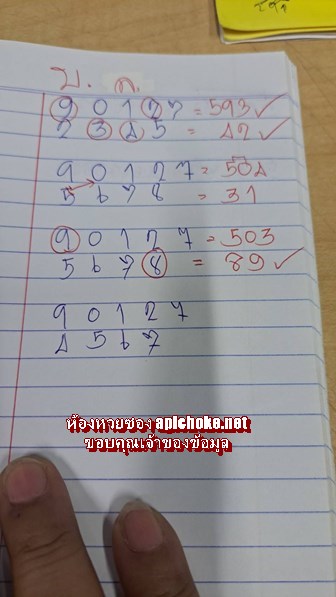 9 0 1 2 7 = 593 ✓
2 3 4 5 = 42 ✓
9 0 1 2 7 = 504
5 6 7 8 = 31
9 0 1 2 7 = 503
5 6 7 8 = 89 ✓
9 0 1 2 7
4 5 6 7
ห้องหวยซอง apichoke.net
ขอบคุณเจ้าของข้อมูล